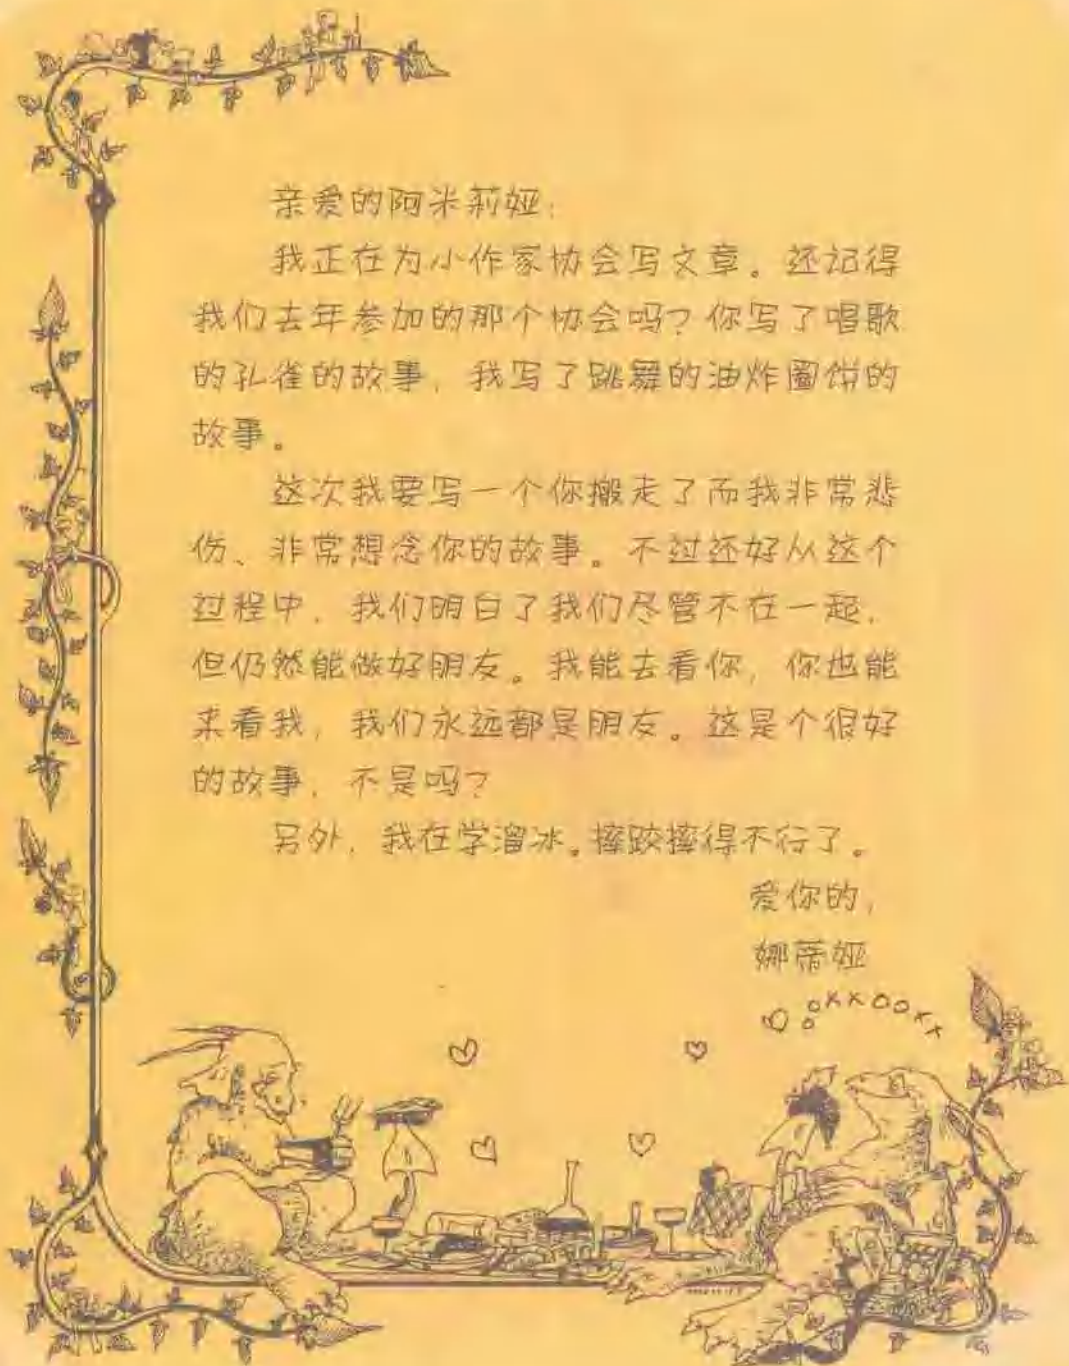 亲爱的阿米莉娅：
我正在为小作家协会写文章。还记得
我们去年参加的那个协会吗？你写了唱歌
的孔雀的故事，我写了跳舞的油炸圈饼的
故事。
这次我要写一个你搬走了而我非常悲
伤、非常想念你的故事。不过还好从这个
过程中，我们明白了我们尽管不在一起，
但仍然能做好朋友。我能去看你，你也能
来看我，我们永远都是朋友。这是个很好
的故事，不是吗？
另外，我在学溜冰。摔跤摔得不行了。
爱你的，
娜蒂娅
ooxxooxx